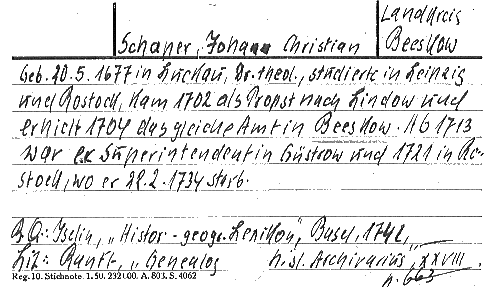 Landkreis
Schaper, Johann Christian
Beeskow
Geb. 20.5.1677 in Luckau, Dr. theol., studierte in Leipzig
und Rostock, kam 1702 als Propst nach Lindow und
erhielt 1704 das gleiche Amt in Beeskow. Ab 1713
war er Superintendent in Güstrow und 1721 in Ro-
stock, wo er 22.2.1734 starb.
B.Q.: Iselin, „Histor-geogr. Lexikon", Basel, 1742,
Lit.: „Genealog hist. Archivarius", XXVIII
p. 663
Reg. 10. Stichnote. 1. 50. 232100. A. 803. S. 4062